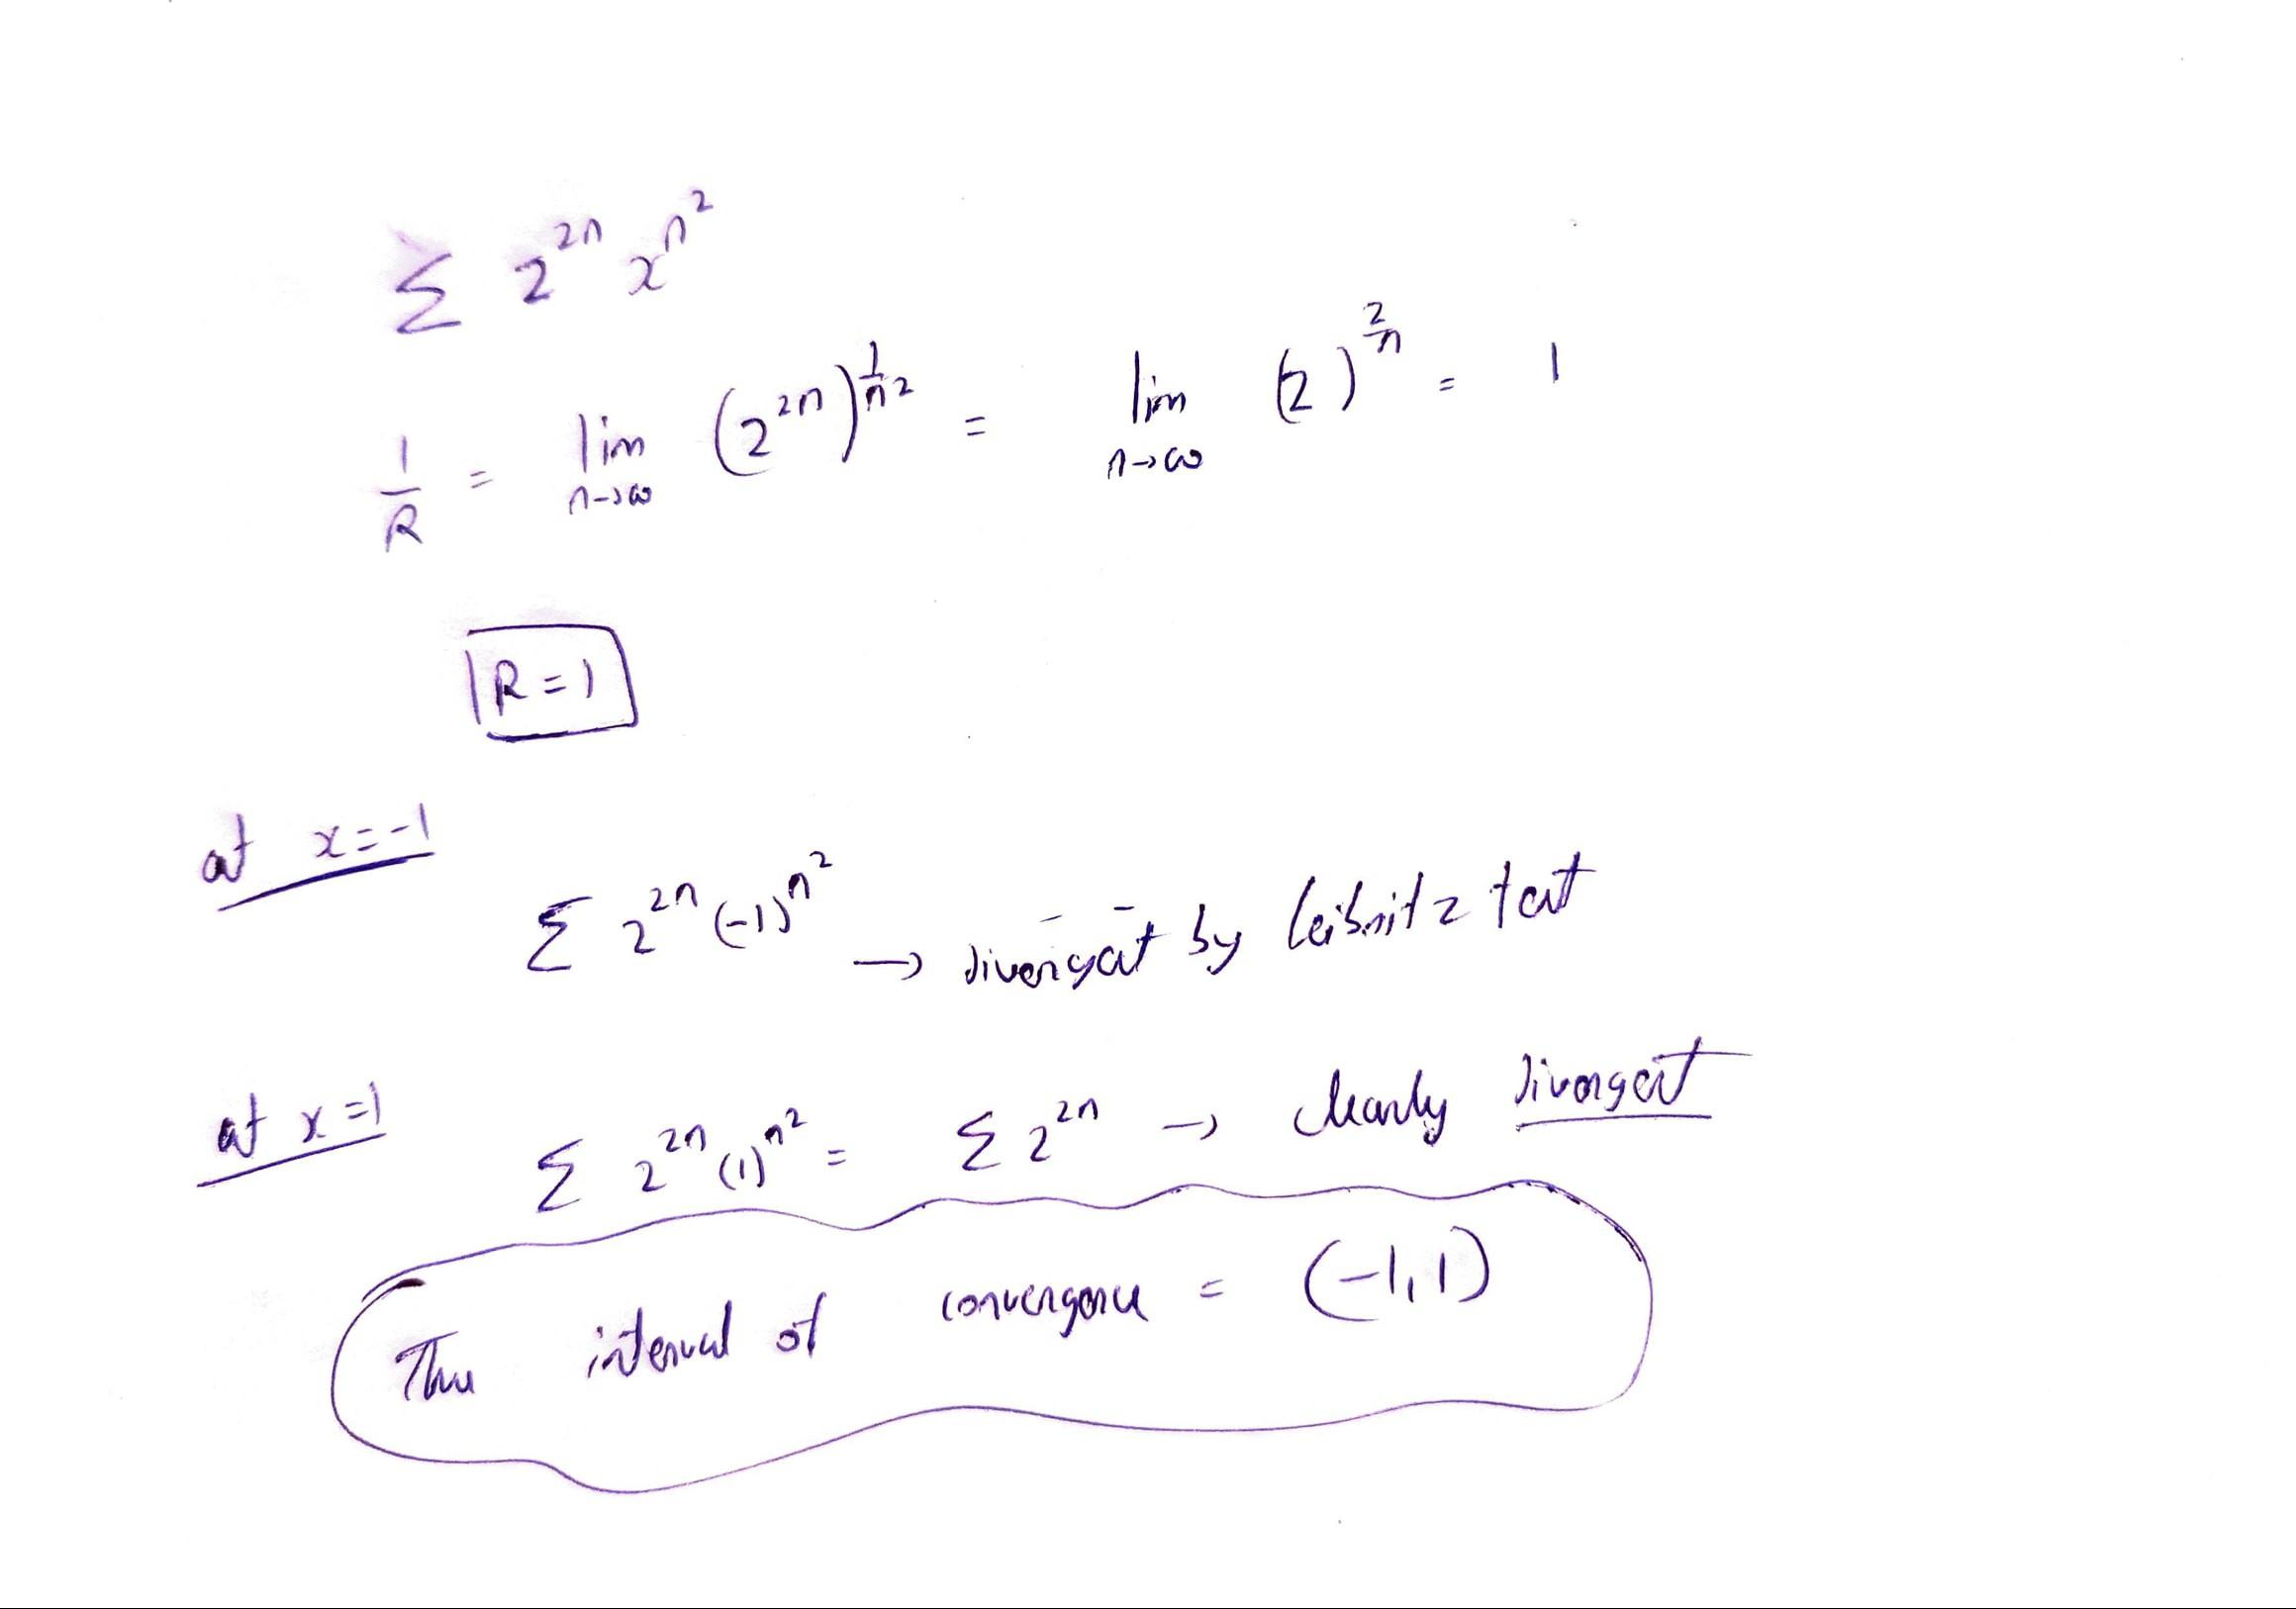 Σ 2^{2n} x^{n^2}
1/R = lim_{n→∞} (2^{2n})^{1/n^2} = lim_{n→∞} (2)^{2/n} = 1
R = 1
at x=-1
Σ 2^{2n} (-1)^{n^2} → divergent by Leibnitz test
at x=1
Σ 2^{2n} (1)^{n^2} = Σ 2^{2n} → clearly divergent
Thus interval of convergence = (-1,1)